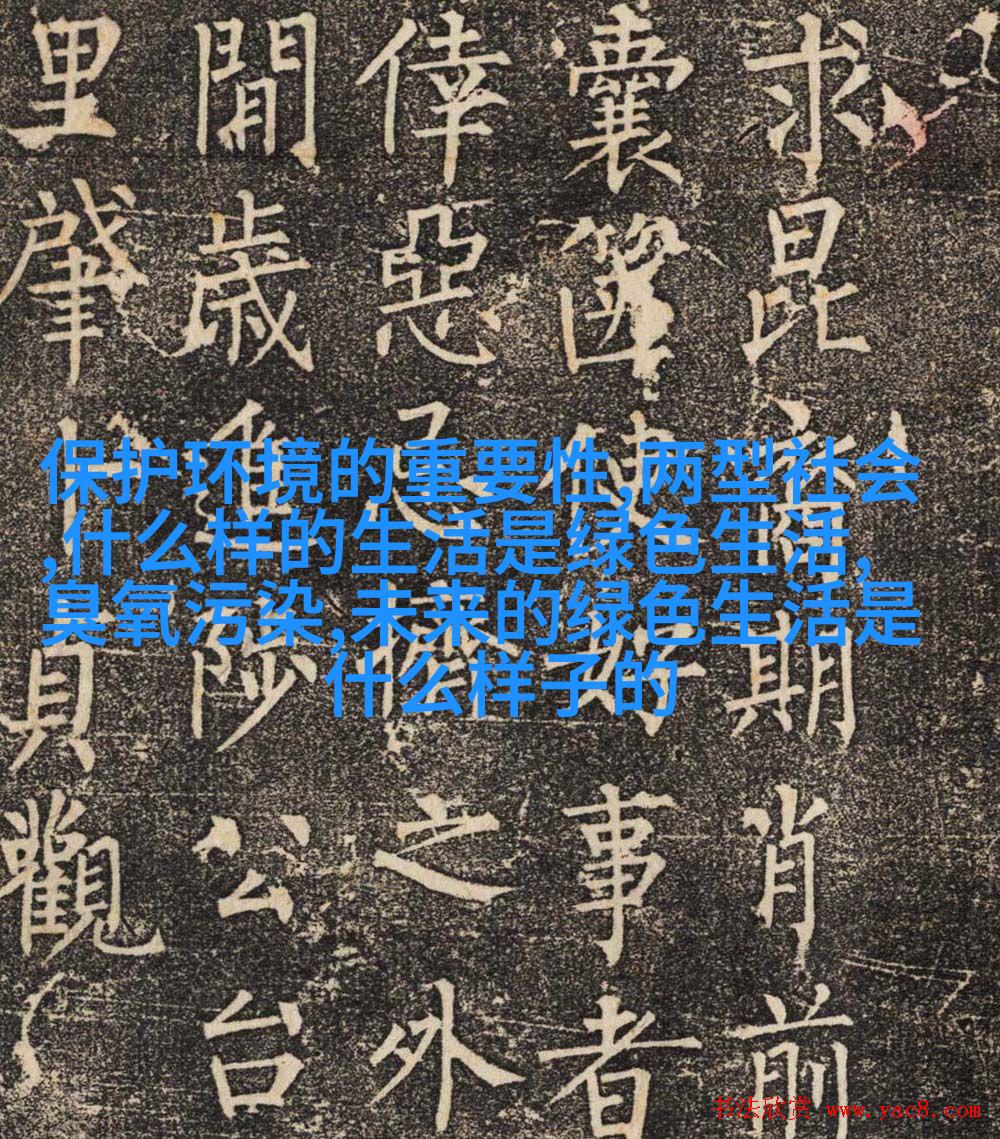 保护环境的重要性,两型社会
,什么样的生活是绿色生活,
臭氧污染,未来的绿色生活是
什么样子的
求昆期肖前
囊篋使好事者
倖惡忌之外
閒歲陟公台
里肇貞觀
书法欣赏 www.yac8.com